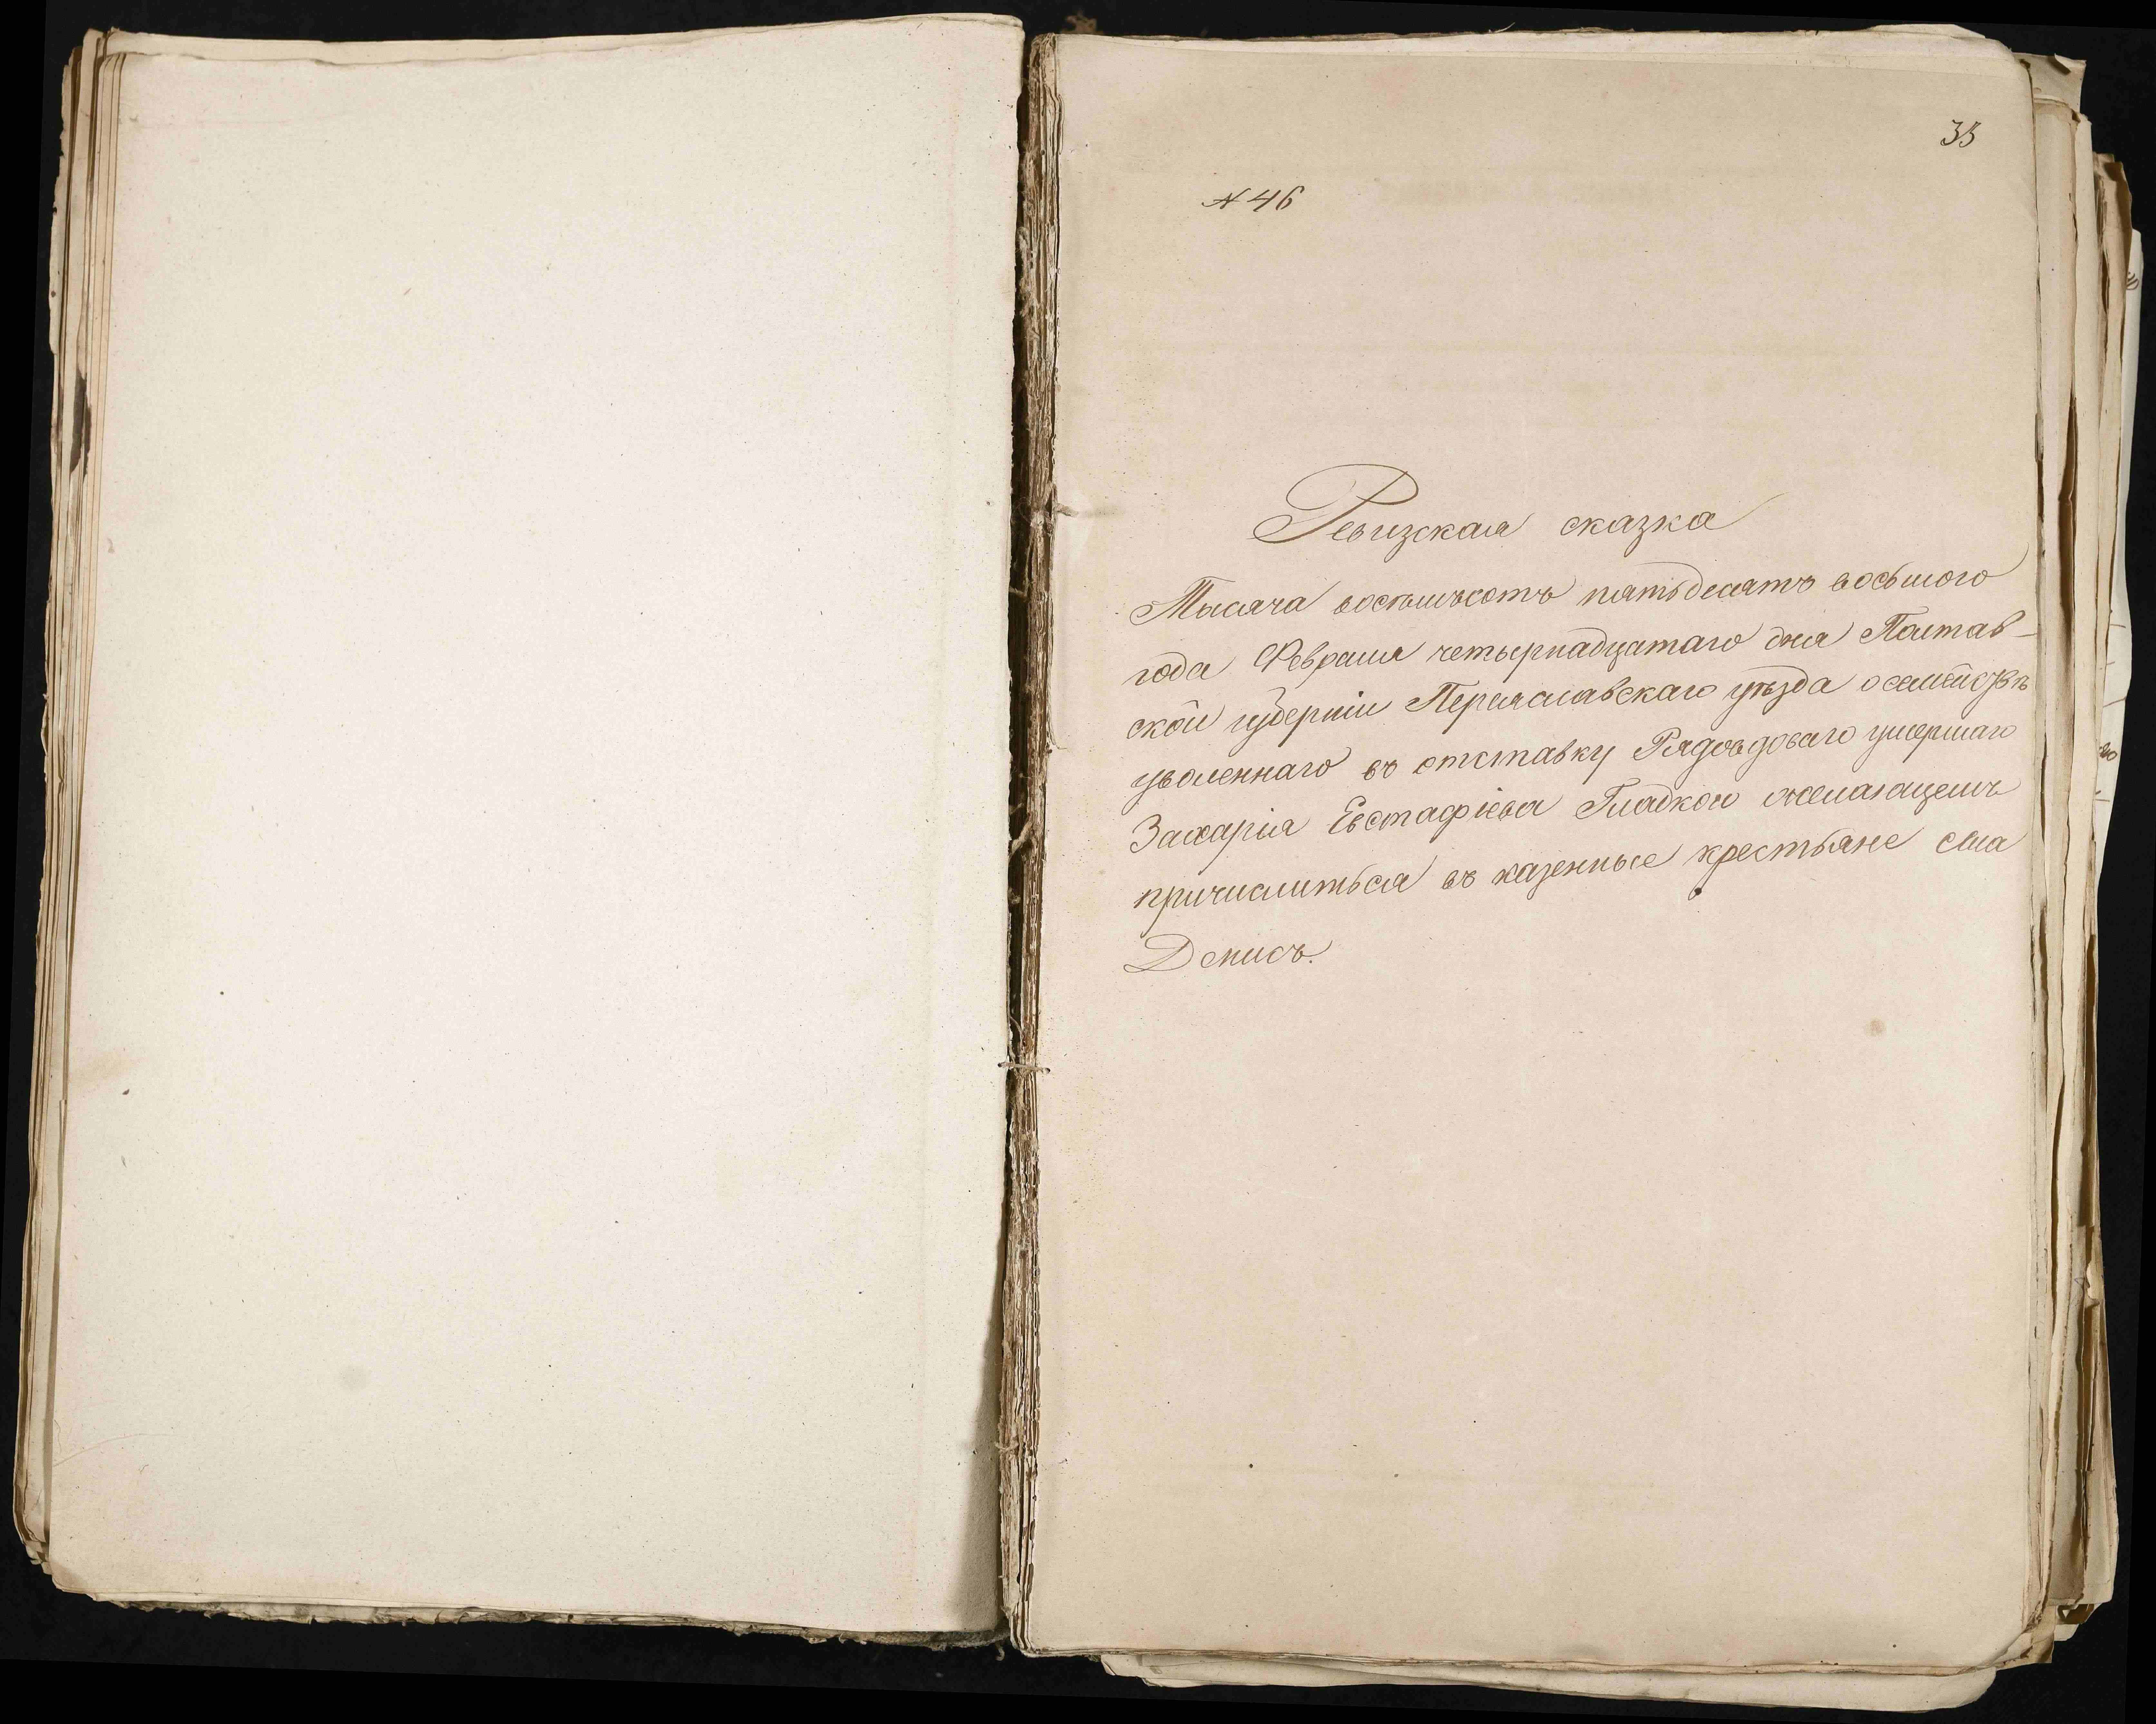 33
№ 46
Ревизская сказка
Тысяча восемьсотъ пятьдесятъ восьмого
года Февраля четырнадцатаго дня Полтав-
ской губерніи Переяславскаго уѣзда о семействѣ
уволеннаго въ отставку умершаго
Захарія Евстафіева Гладкой желающемъ
причислиться въ казенные крестьяне сына
Денисъ.